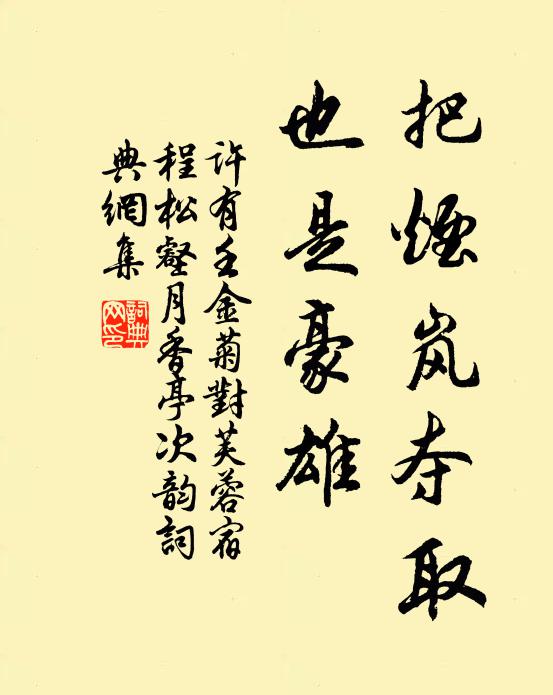 把煙岚夺取
也是豪雄
許有壬金菊對芙蓉宿
程松壑月香亭次韵詞
典網集
詞典网印